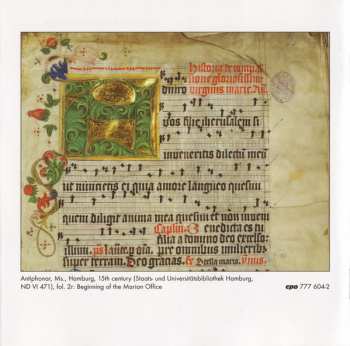 Historia de compas
none gloriosissim
virginis marie. 
vos filie iherusalem si
inveneritis dilectū meū
me nuncietis ei quia amore langueo quesiui
quem diligit anima mea quesiui et non inveni
Capłm. Benedicta es tu
filia a domino deo excelso
pre omnibus mulieribus
super terram. Deo gracias. Stella maris. 
Antiphonar, Ms., Hamburg, 15th century (Staats- und Universitätsbibliothek Hamburg,
ND VI 471), fol. 2r: Beginning of the Marian Office
cpo 777 604-2